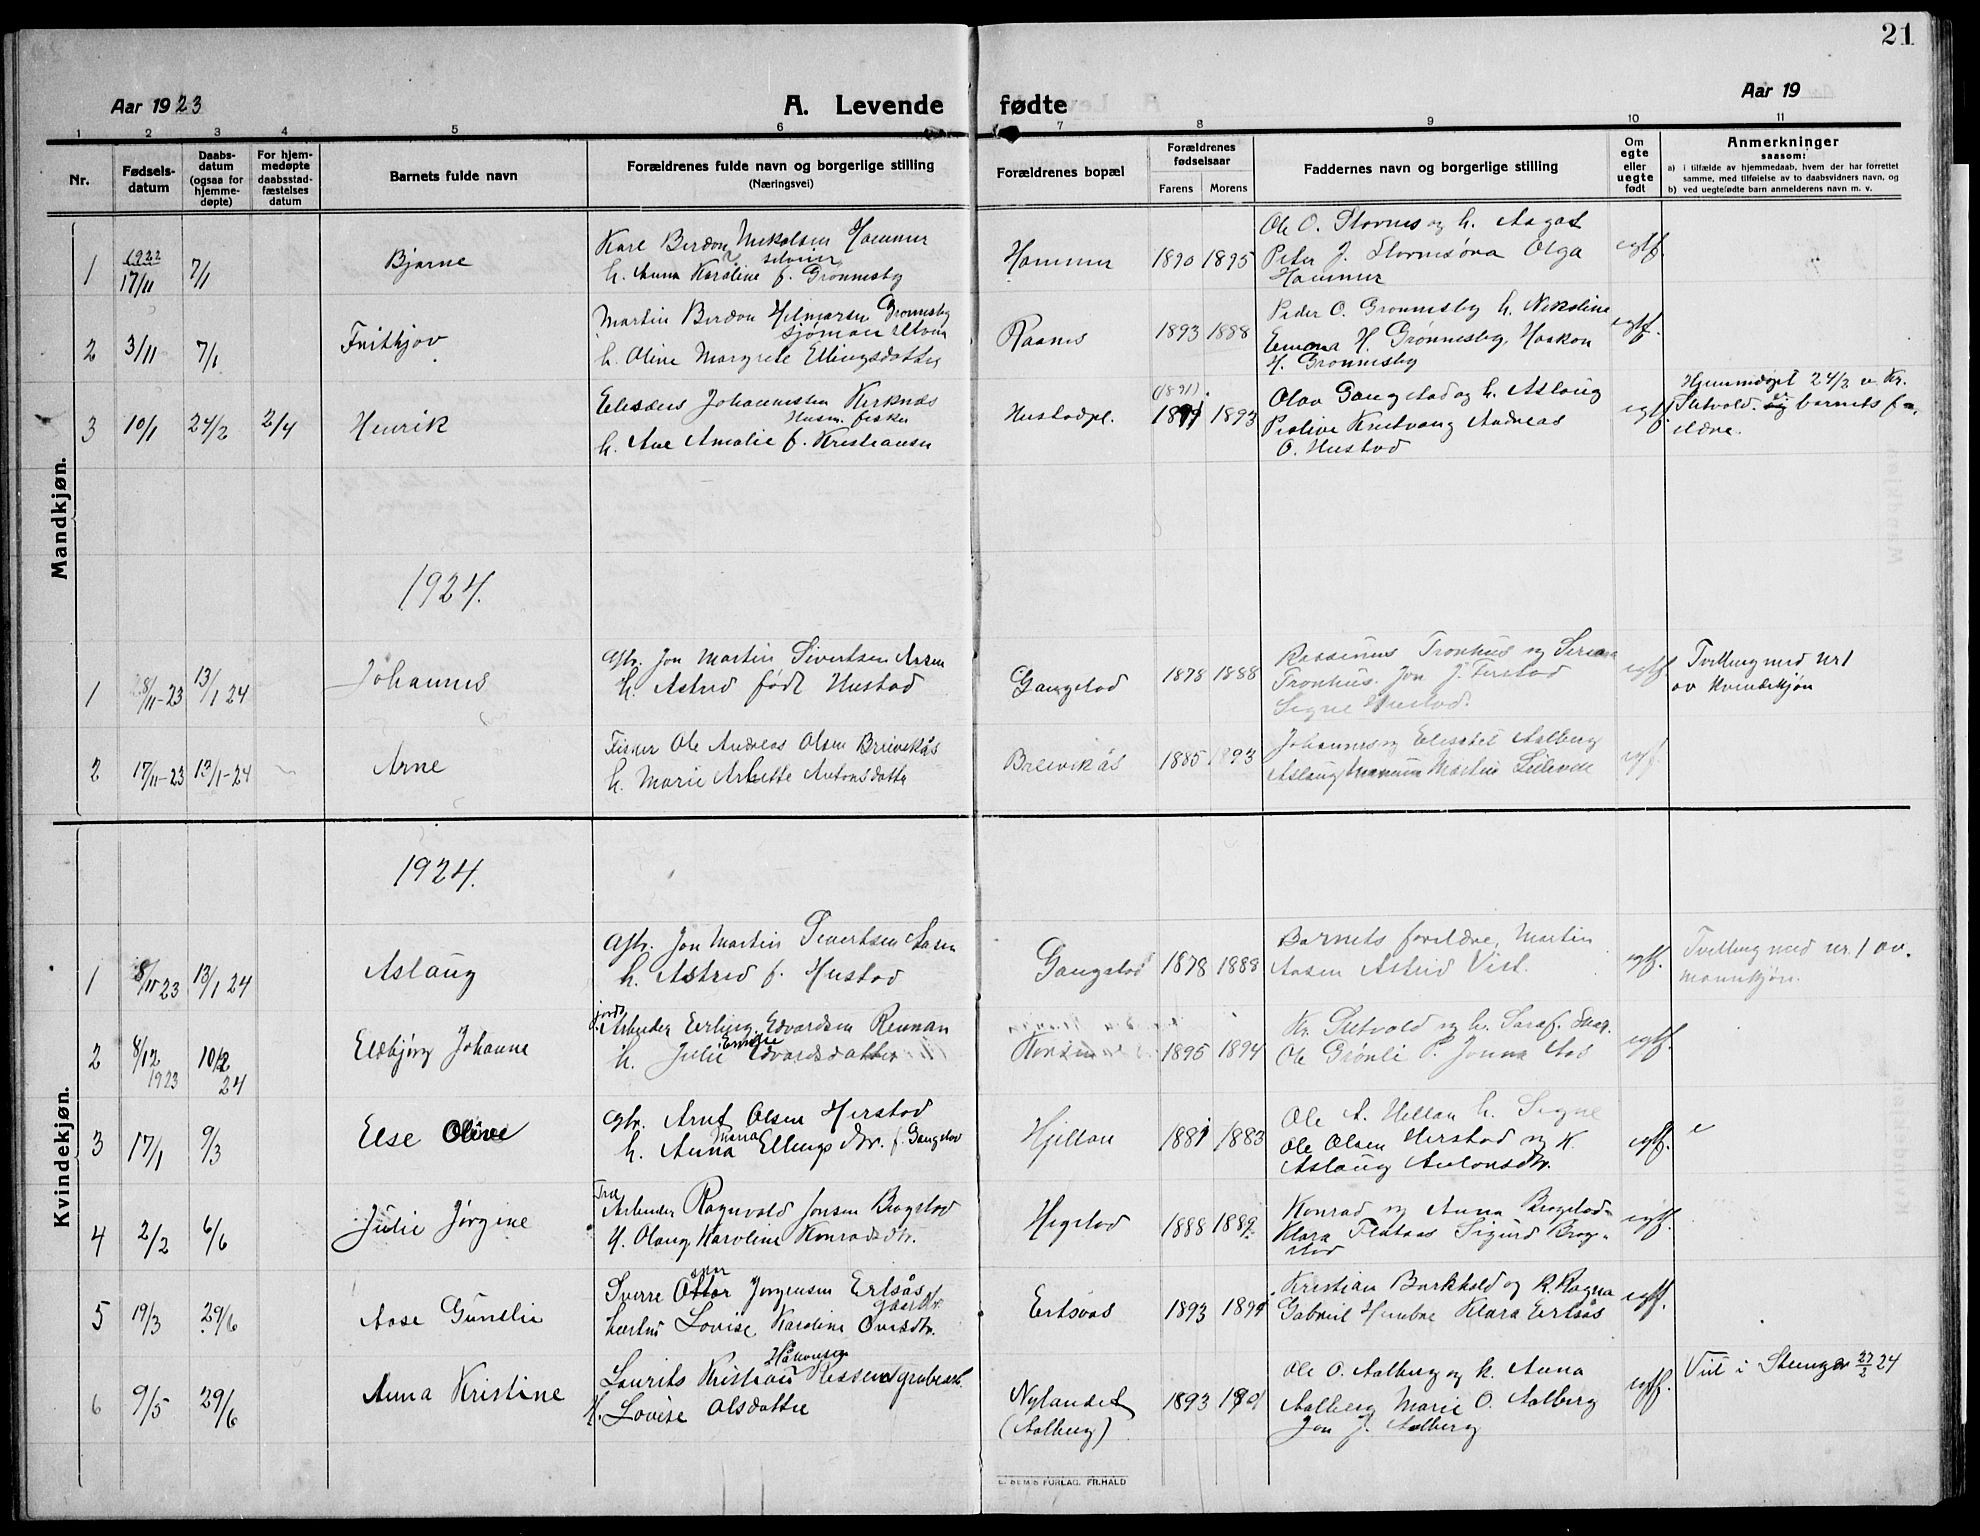 21
Aar 1923
A. Levende fødte
Aar 19
1 2 3 4 5 6 7 8 9 10 11
Nr.
Fødsels-
datum
Daabs-
datum
(ogsaa for
hjemme-
døpte)
For hjem-
medøpte
daabsstad-
fæstelses
datum
Barnets fulde navn
Forældrenes fulde navn og borgerlige stilling
(Næringsvei)
Forældrenes bopæl
Forældrenes
fødselsaar
Farens Morens
Faddernes navn og borgerlige stilling
Om
egte
eller
uegte
født
Anmerkninger
saasom:
a) i tilfælde av hjemmedaab, hvem der har forrettet
samme, med tilføielse av to daabsvidners navn, og
b) ved uegtefødte barn anmelderens navn m. v.
Mandkjøn.
1 1922 17/11 7/1 Bjarne
Karl Berdon Nikolsen Hammer
h. Anna Karoline f. Grønnesby
Hammer 1890 1895
Ole O. Stornes og h. Aagat
Peter J. Stornesøra Olga
Hammer
egtf.
2 3/11 7/1 Frithjov
Martin Berdon Hilmarsen Grønnesby
sjømann
h. Oline Margrete Ellingsdatter
Raanes 1893 1888
Peder O. Grønnesby h. Nikoline
Emma H. Grønnesby, Haakon
H. Grønnesby
egtf.
3 10/1 24/2 2/4 Henrik
Johannessen Kirknæs
Husm. fisker
h. Ane Amalie f. Kristiansen
Hustadpl. (1891) 1893
Olav Gangstad og h. Aslaug
Andreas
O. Hustad
egtf.
Hjemmdøpt 24/2 v. Kr.
Sutvold. barnets f-
ældre.
1924.
1 8/11-23 13/1 24 Johannes
Gbr. Jon Martin Sivertsen Aasen
h. Astrid født Hustad
Gangstad 1878 1888
Rasmus Tronhus og
Tronhus. Jon J.
Signe Hustad.
egtf.
Tvilling med nr 1
av Kvindekjøn
2 17/11-23 13/1-24 Arne
Fisker Ole Andreas Olsen Breivikås
h. Marie Antonsdatter
Breivikås 1885 1893
Johannes og Elisabet Aalberg
Aslaug Martin
egtf.
Kvindekjøn.
1924.
1 8/11 23 13/1 24 Aslaug
Gbr. Jon Martin Sivertsen Aasen
h. Astrid f. Hustad
Gangstad 1878 1888
Barnets forældre, Martin
Aasen Astrid Vist.
egtf.
Tvilling med nr. 1 av
mannkjøn.
2 8/12 1923 10/2 24 Eldbjørg Johanne
jords
Arbeider Erling Edvardsen Rennan
h. Julie Edvardsdatter
Korsen 1895 1894
Kr. Sutvold og h. Sara f.
Ole Grønli P. Jonna Aas
egtf.
3 17/1 9/3 Else Olive
Gbr. Arnt Olsen Hirstad
h. Anna Maria Ellingsdtr. f. Gangstad
Hjellan 1881 1883
Ole A. Hellan h. Signe
Ole Olsen Hirstad og K.
Aslaug Antonsdtr.
egtf.
4 2/2 6/6 Julie Jørgine
Arbeider Ragnvald Jonsen Bragstad
H. Olaug Karoline Konradsdtr.
Hegstad 1888 1889
Konrad og Anna Bragstad
Klara Flataas Sigurd Brag-
stad
egtf.
5 19/3 29/6 Aase Gunelie
Sverre Ottar Jørgensen Ertsås
Gaardbr.
hustru Lovise Karoline
Ertsaas 1893
Kristian Barkhald og k. Ragna
Gabriel Klara Ertsås
egtf.
6 9/5 29/6 Anna Kristine
Laurits Kristian grubearb.
H. Lovise Olsdatter
Nylandet
(Aalberg)
1893
Ole O. Aalberg og k. Anna
Aalberg Marie O. Aalberg
Jon J. Aalberg
egtf.
Viet i 27/2 24
E. SEM'S FORLAG. FR.HALD